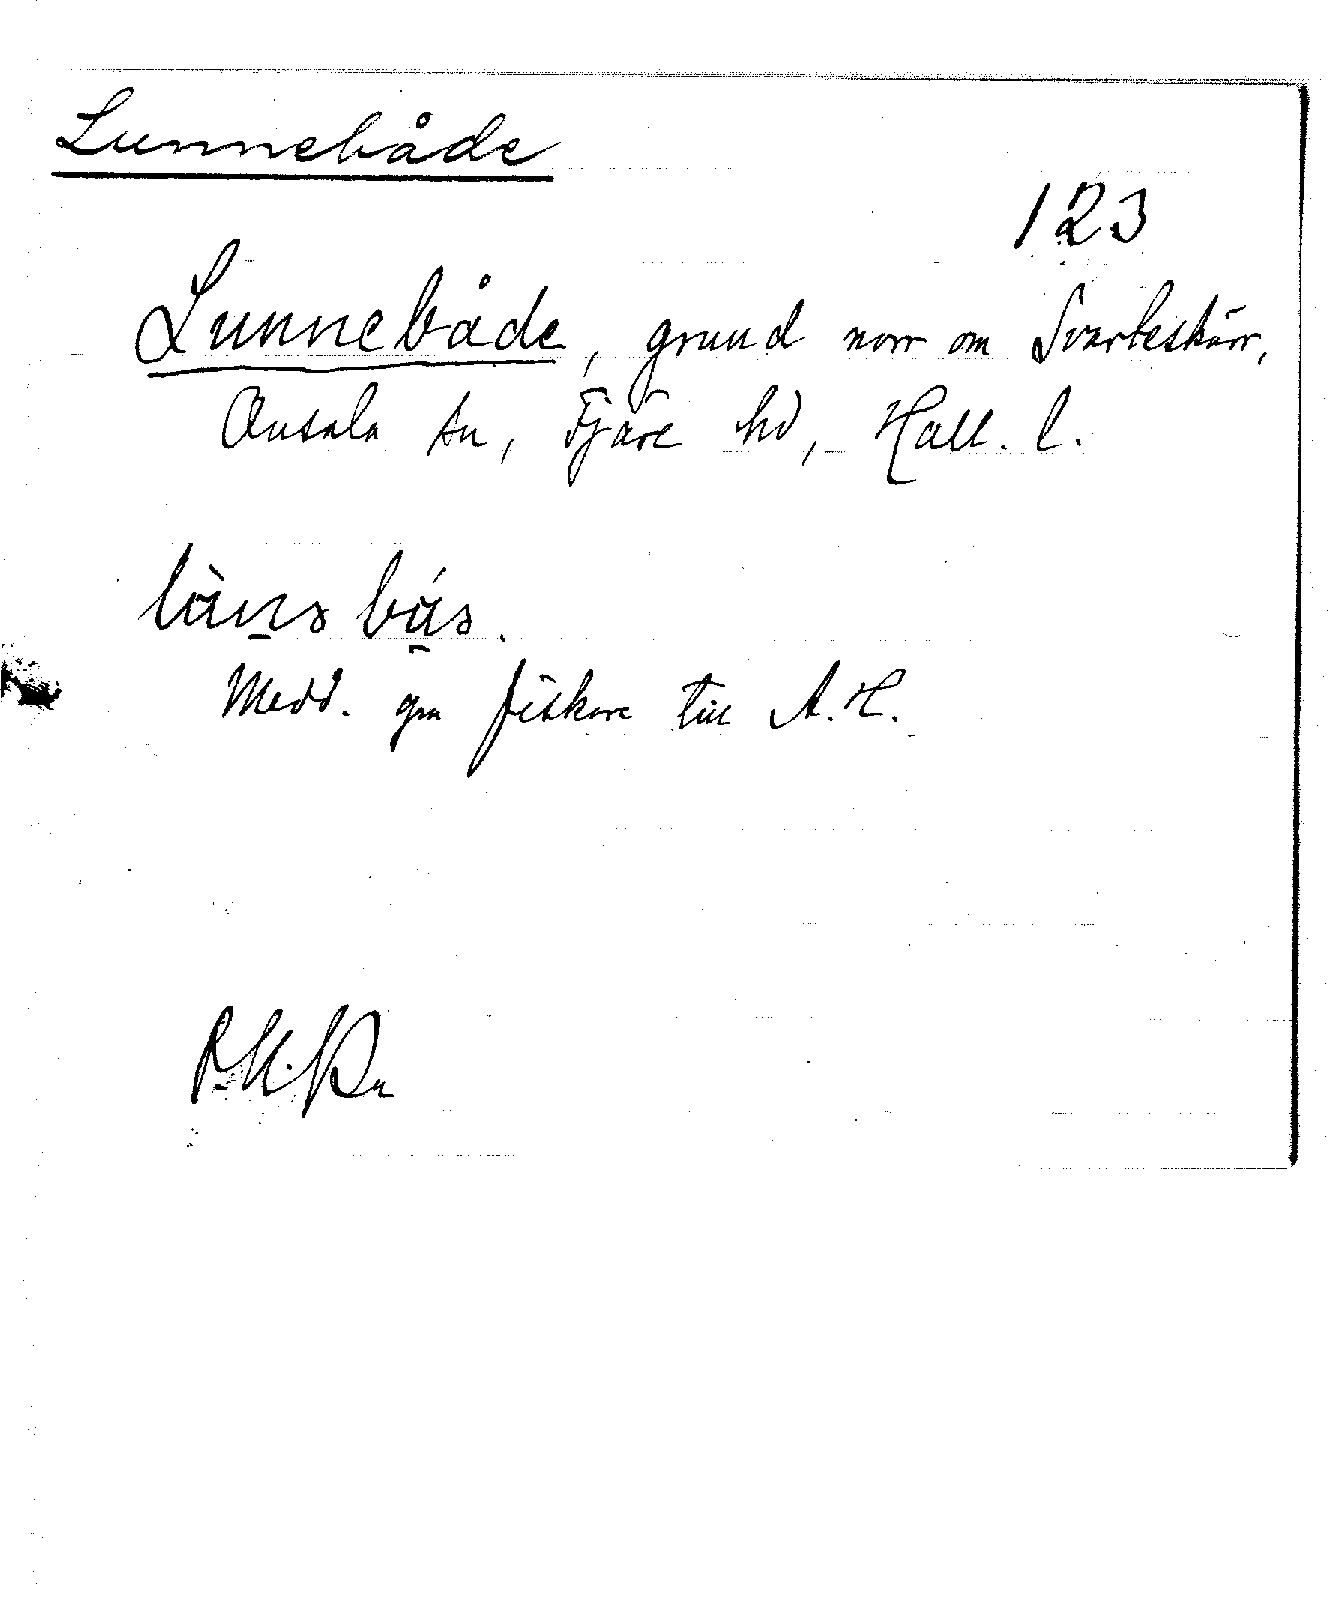 Lunnebåde
123
Lunnebåde, grund norr om Svarteskärr,
Onsala sn, Fjäre hd, Hall. l.
Medd. gm fiskare till A.H.